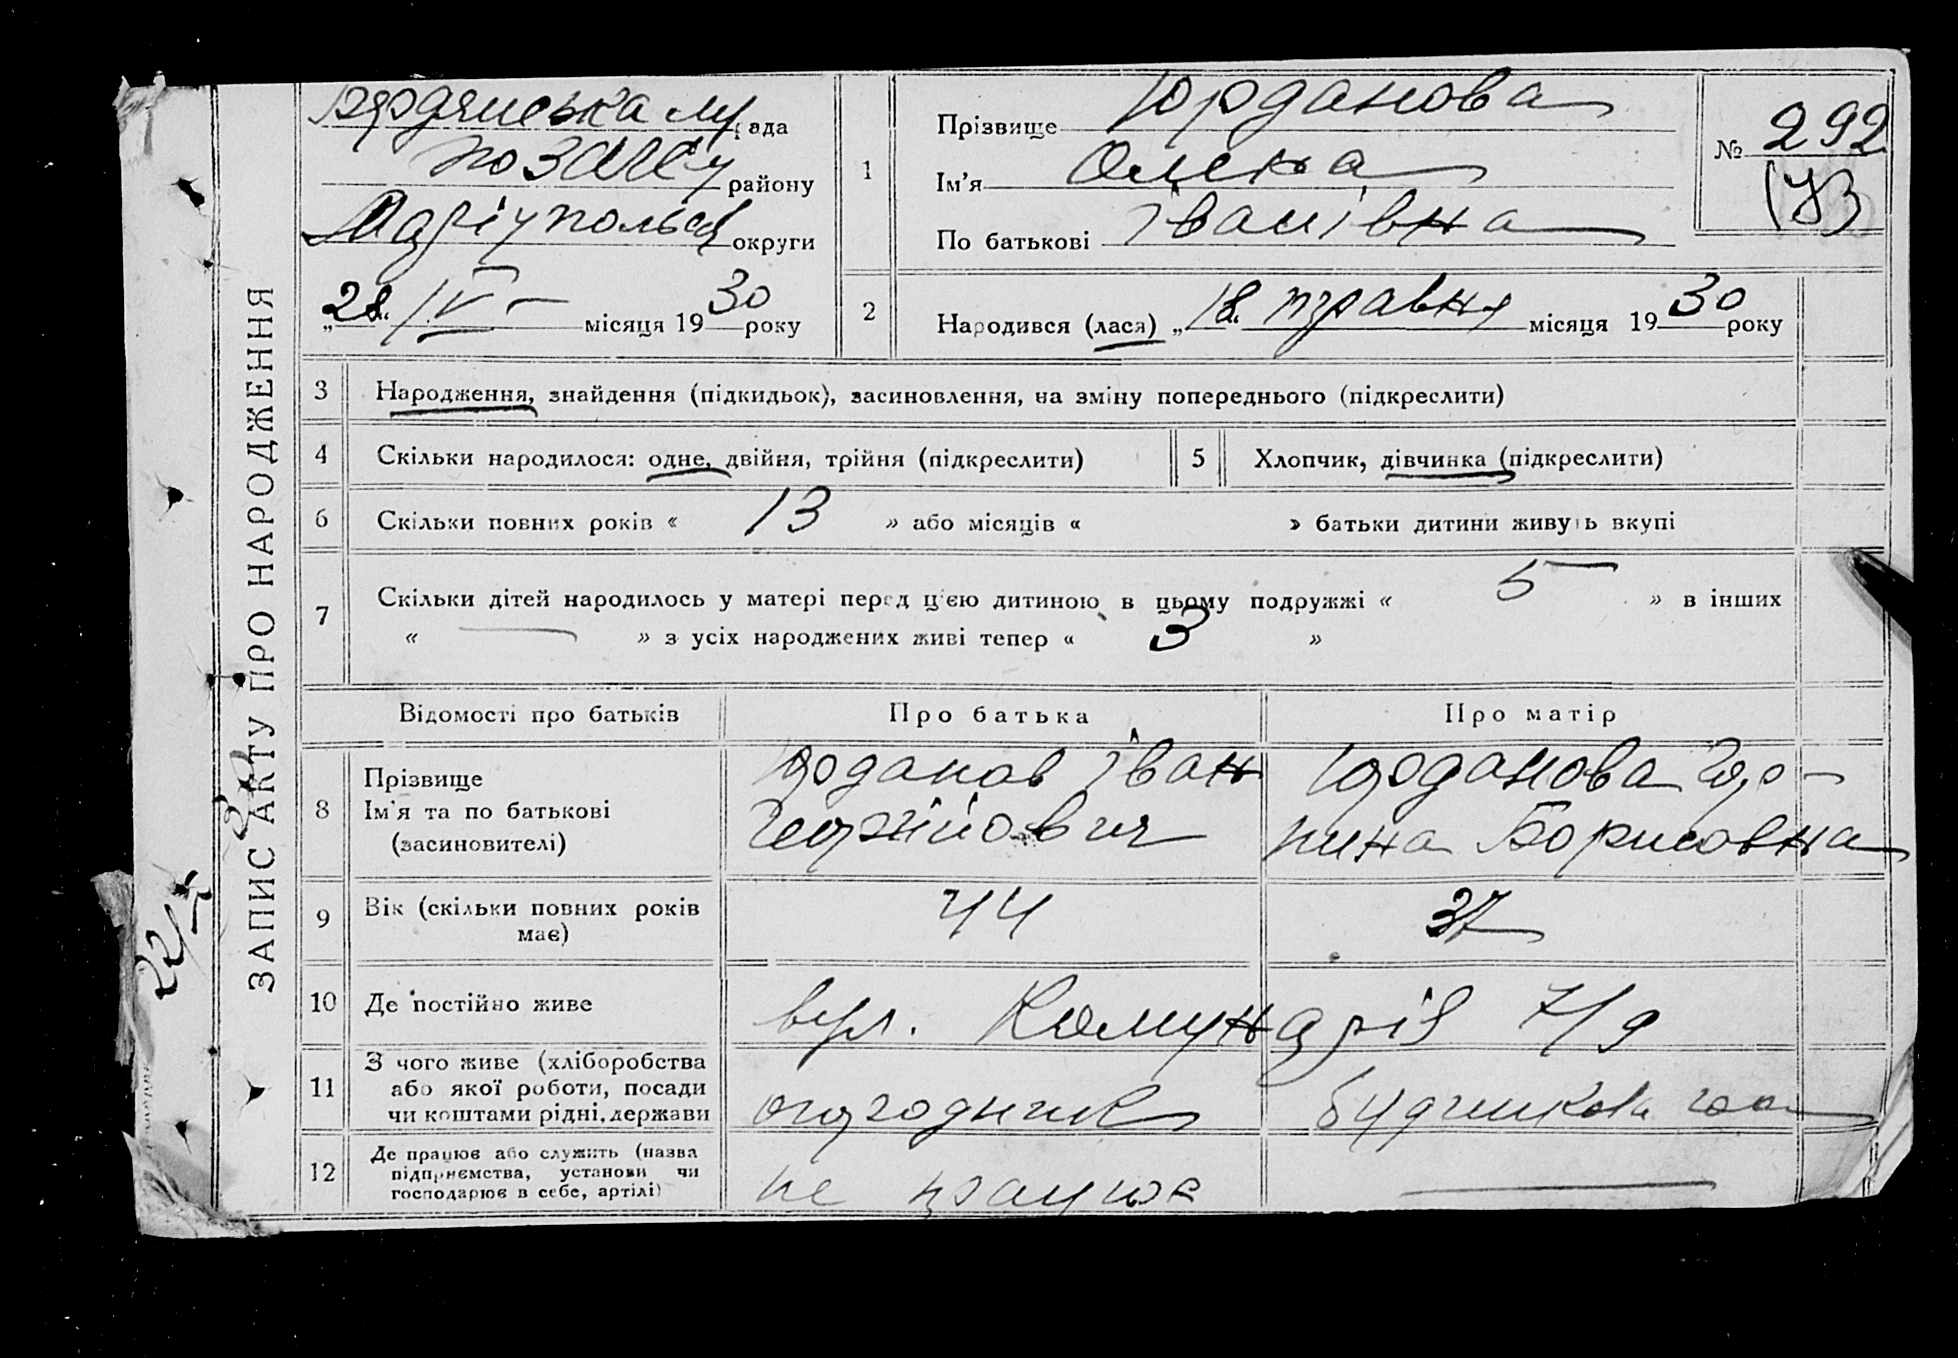 ЗАПИС АКТУ ПРО НАРОДЖЕННЯ
Бердянська рада
по ЗАГСу району
Маріупольск округи
„28“ IV місяця 1930 року
1
Прізвище Юрданова
Ім'я Олена
По батькові Іванівна
№ 292
173
2
Народився (лася) „18“ травня місяця 1930 року
3 Народження, знайдення (підкидьок), засиновлення, на зміну попереднього (підкреслити)
4 Скільки народилося: одне, двійня, трійня (підкреслити)
5 Хлопчик, дівчинка (підкреслити)
6 Скільки повних років « 13 » або місяців « » батьки дитини живуть вкупі
7 Скільки дітей народилось у матері перед ц'єю дитиною в цьому подружжі « 5 » в інших
« — » з усіх народжених живі тепер « 3 »
Відомості про батьків Про батька Про матір
8 Прізвище
Ім'я та по батькові
(засновителі)
Юрданов Іван
Георгійович
Юрданова
пина Борисовна
9 Вік (скільки повних років
має)
44
37
10 Де постійно живе
вул. Комунарів 7/9
11 З чого живе (хліборобства
або якої роботи, посади
чи коштами рідні, держави
огородник
12 Де працює або служить (назва
підприємства, установи чи
господарює в себе, артілі)
не працює
22/5